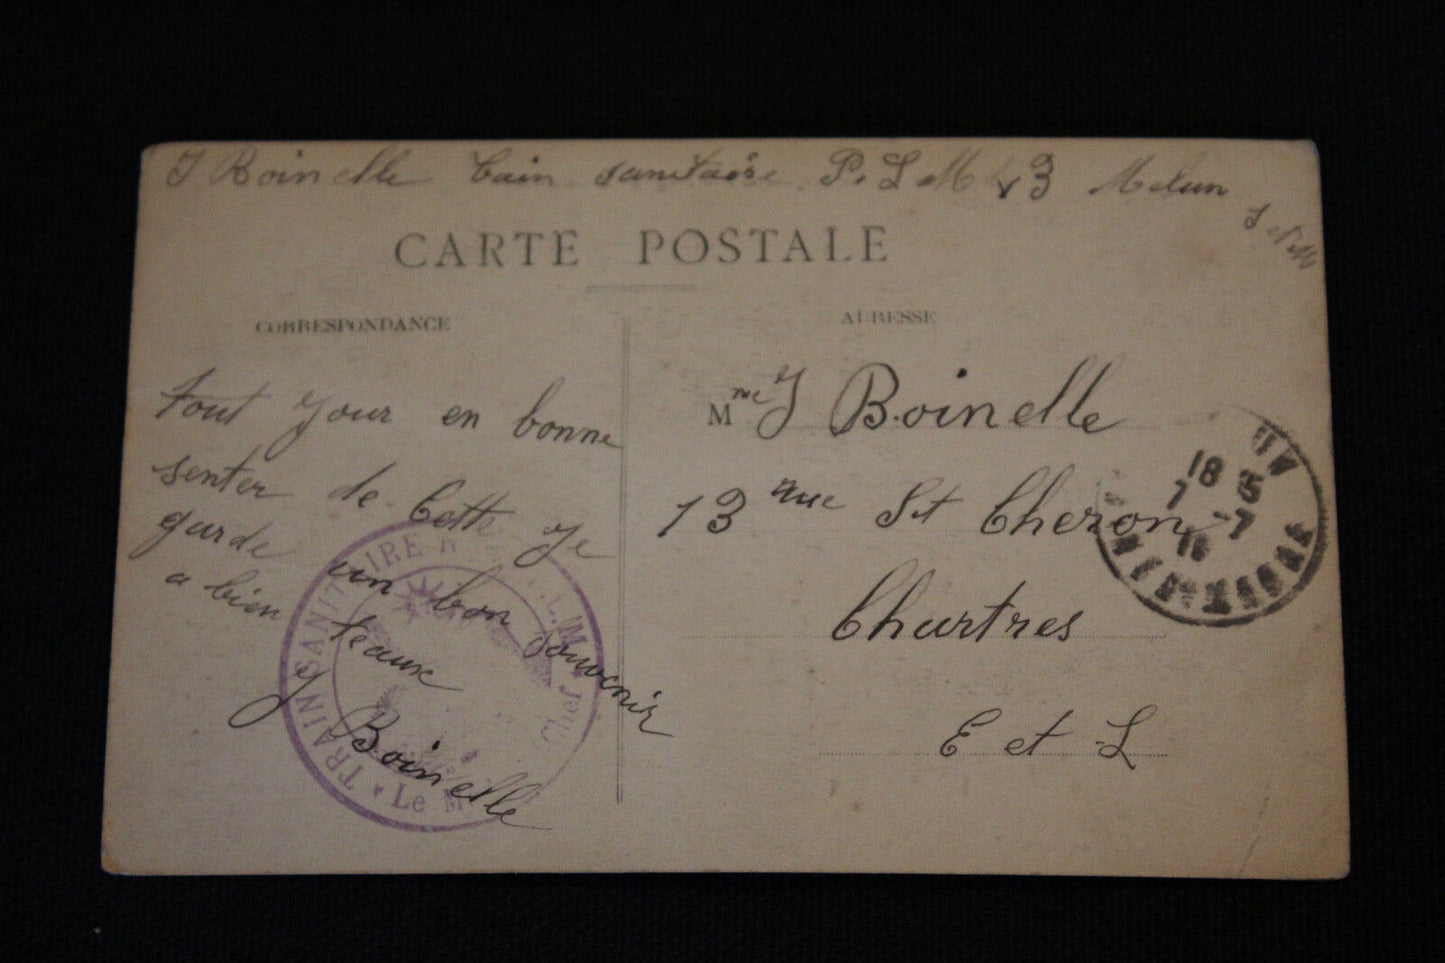 J Boinelle train sanitaire P. L M 3 Melun
S et M
CARTE POSTALE
CORRESPONDANCE
ADRESSE
tout jour en bonne
senter de Cette je
garde un bon souvenir
a bien teaux
J Boinelle
Mme J Boinelle
13 rue St Cheron
Chartres
E et L
TRAIN SANITAIRE N L.M. Le M
18 5
7 -7